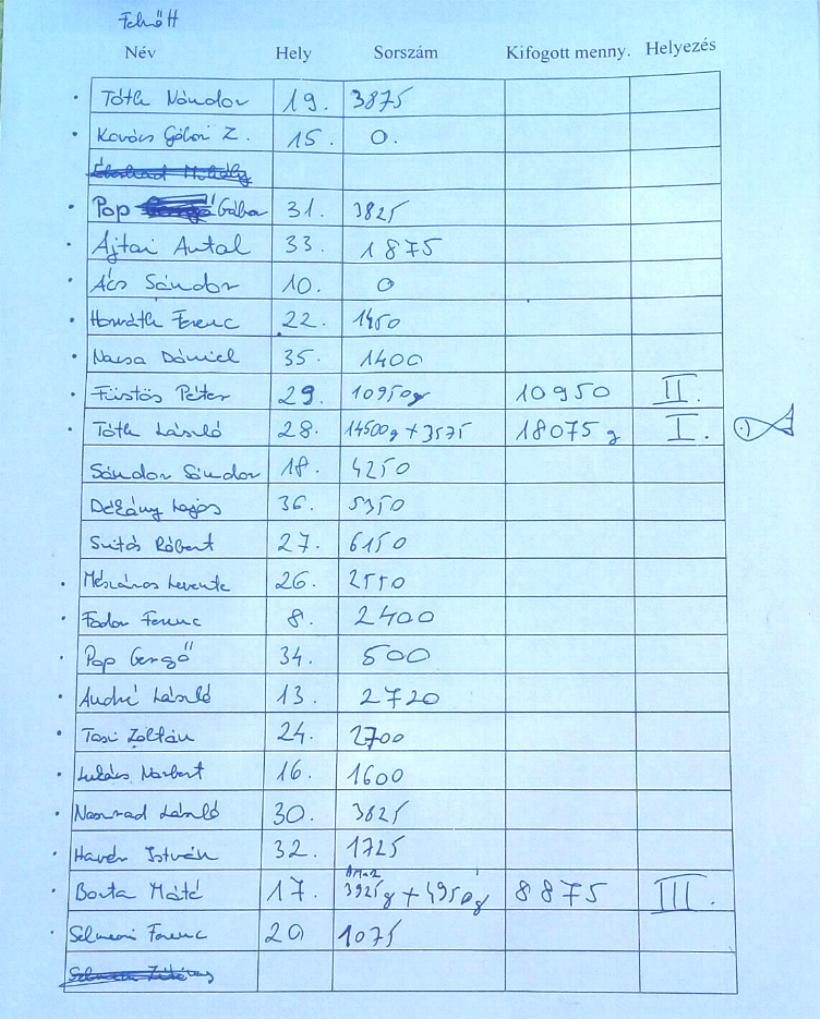 Felnőtt
Név Hely Sorszám Kifogott menny. Helyezés
Tóth Nándor 19. 3875
Kovács Gábor Z. 15. 0.
Pop Gábor 31. 3825
Ajtai Antal 33. 1875
Ács Sándor 10. 0
Horváth Ferenc 22. 1450
Nacsa Dániel 35. 1400
Füstös Péter 29. 10950g 10950 II.
Tóth László 28. 14500g + 3575 18075 g I.
Sándor Sándor 18. 4250
Dékány Lajos 36. 5350
Sutás Róbert 27. 6150
Mészáros Levente 26. 2550
Fodor Ferenc 8. 2400
Pop Gergő 34. 500
André László 13. 2720
Tasi Zoltán 24. 2700
Lukács Norbert 16. 1600
László 30. 3825
István 32. 1725
Máté 17. 3925g + 4950g 8875 III.
Ferenc 20 1075